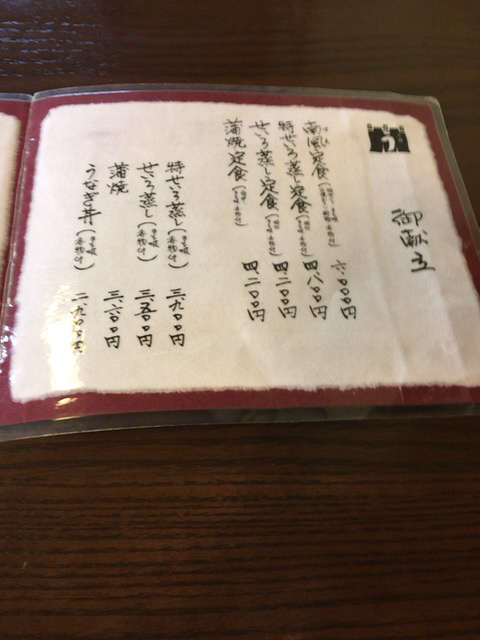 う
御献立
南風定食 六、〇〇〇円
特せいろ蒸し定食 四、八〇〇円
せいろ蒸し定食 四、二〇〇円
蒲焼定食 四、二〇〇円
特せいろ蒸し（きも吸 香物付） 三、九〇〇円
せいろ蒸し（きも吸 香物付） 三、五〇〇円
蒲焼 三、六〇〇円
うなぎ丼（きも吸 香物付） 二、九〇〇円